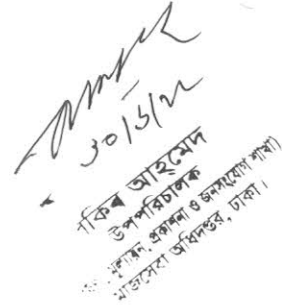 ৩০/১/২২
কিব আহমেদ
উপপরিচালক
মূল্যায়ন, প্রকাশনা ও জনসংযোগ শাখা)
াজসেবা অধিদপ্তর, ঢাকা।